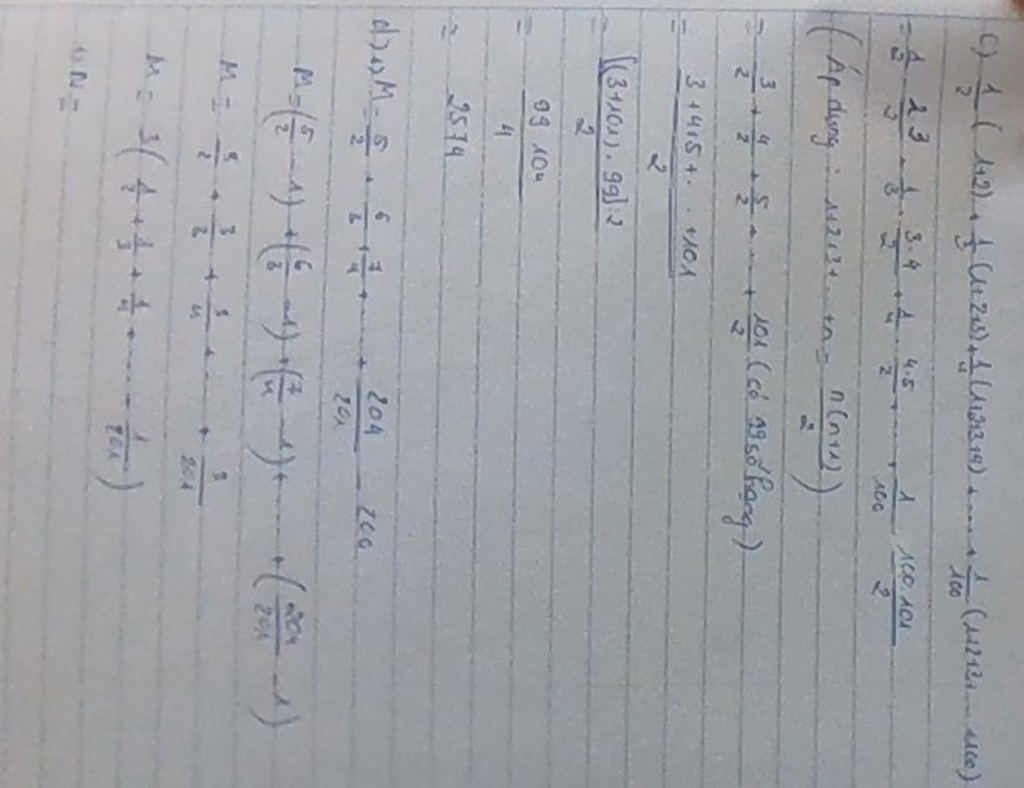 c) 1/2 (1+2) + 1/3 (1+2+3) + 1/4 (1+2+3+4) + ..... + 1/100 (1+2+3+ ... 100)
= 1/2 . 2.3/2 + 1/3 . 3.4/2 + 1/4 . 4.5/2 + ..... + 1/100 . 100.101/2
(Áp dụng : 1+2+3+ ... +n = n(n+1)/2)
= 3/2 + 4/2 + 5/2 + ..... + 101/2 (có 99 số hạng)
= 3+4+5+ ... +101 / 2
= [(3+101) . 99] : 2 / 2
= 99.104 / 4
= 2574
d) 1) M = 5/2 + 6/3 + 7/4 + ..... + 204/201 - 200
M = (5/2 - 1) + (6/3 - 1) + (7/4 - 1) + ..... + (204/201 - 1)
M = 3/2 + 3/3 + 3/4 + ... + 3/201
M = 3 (1/2 + 1/3 + 1/4 + ..... + 1/201)
1) N =